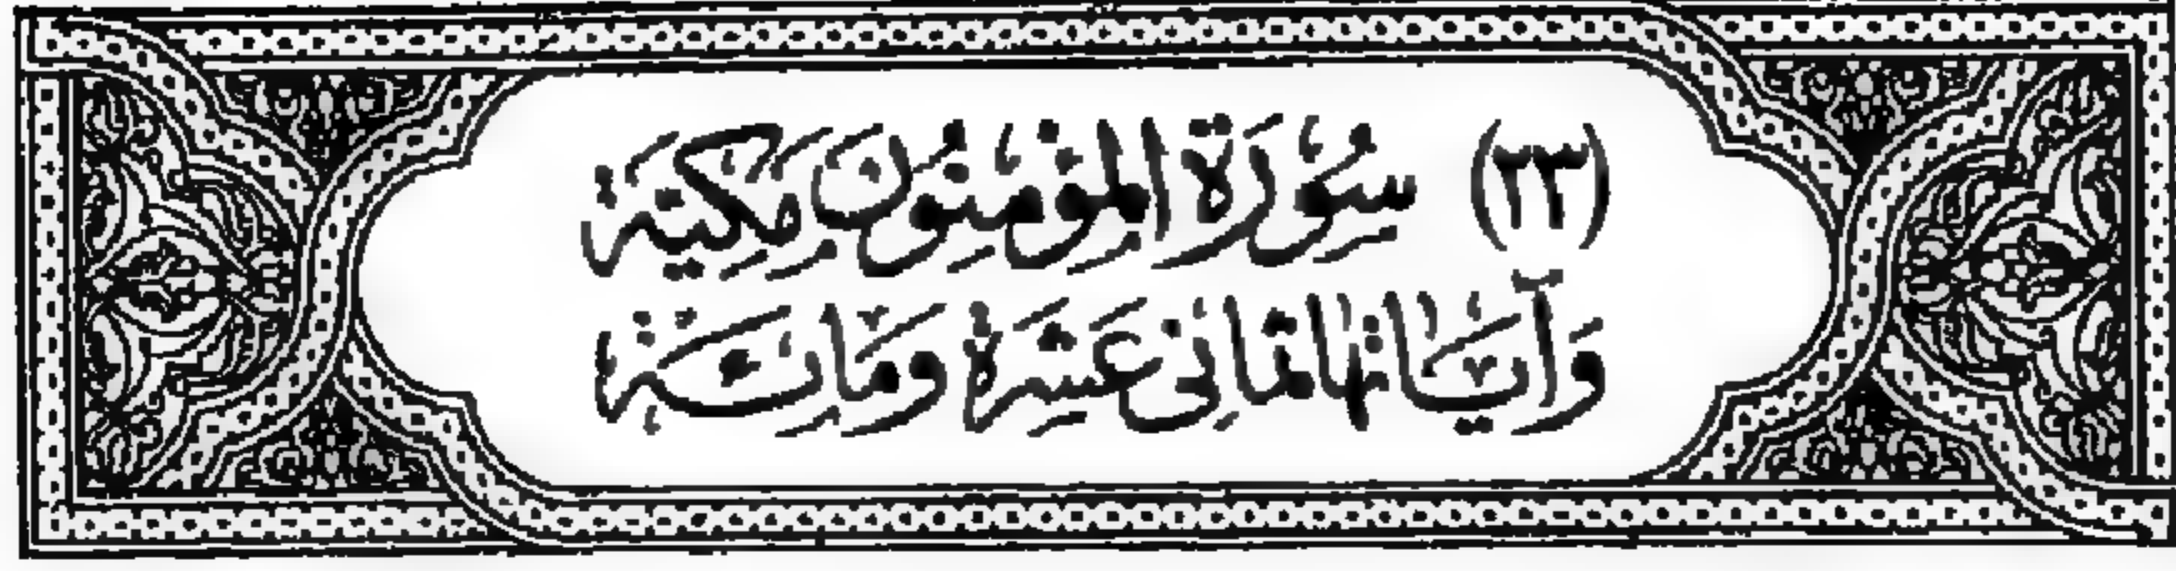 (٢٣) سُوْرَةُ الْمُؤْمِنُوْنَ مَكِيَّةٌ
وَآيَاتُهَا ثَمَانِي عَشَرَةَ وَمِائَةٌ